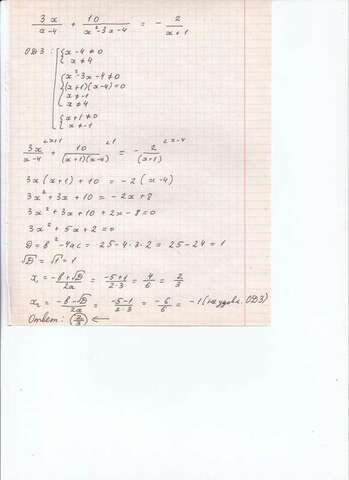 3x/(x-4) + 10/(x²-3x-4) = - 2/(x+1)
ОДЗ: { x-4≠0
x≠4
{ x²-3x-4≠0
(x+1)(x-4)=0
x≠-1
x≠4
{ x+1≠0
x≠-1
3x/(x-4) ∠x+1 + 10/((x+1)(x-4)) ∠1 = - 2/(x+1) ∠x-4
3x(x+1)+10 = -2(x-4)
3x²+3x+10 = -2x+8
3x²+3x+10+2x-8=0
3x²+5x+2=0
D=b²-4ac = 25-4·3·2 = 25-24 = 1
√D = √1 = 1
x₁ = (-b+√D)/2a = (-5+1)/(2·3) = 4/6 = 2/3
x₂ = (-b-√D)/2a = (-5-1)/(2·3) = -6/6 = -1 (не удовл. ОДЗ)
Ответ: (2/3) ←